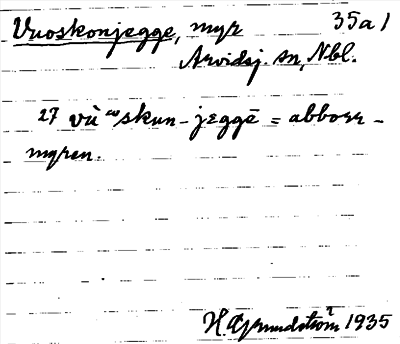 Vuoskonjegge, myr 35a1
Arvidsj. sn, Nbl.
27 vù ͣ ͦskun-jeggē = abborr-
myren.
H Grundström 1935